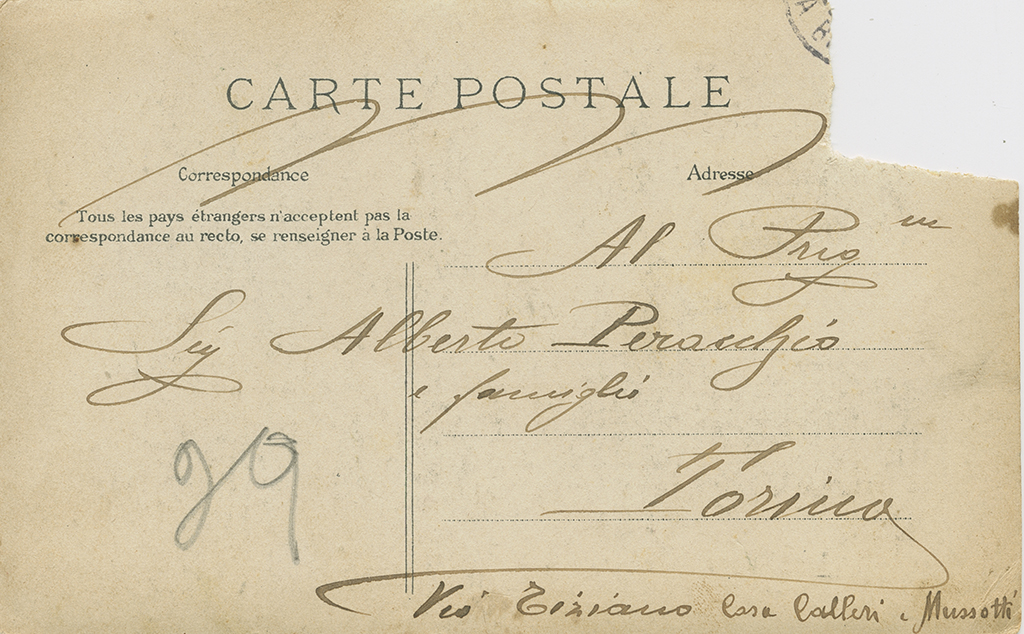 CARTE POSTALE
Correspondance
Adresse
Tous les pays étrangers n'acceptent pas la
correspondance au recto, se renseigner à la Poste.
Al Preg
Sig Alberto
e famiglia
Torino
Via Tiziano Casa Calleri e Mussotti